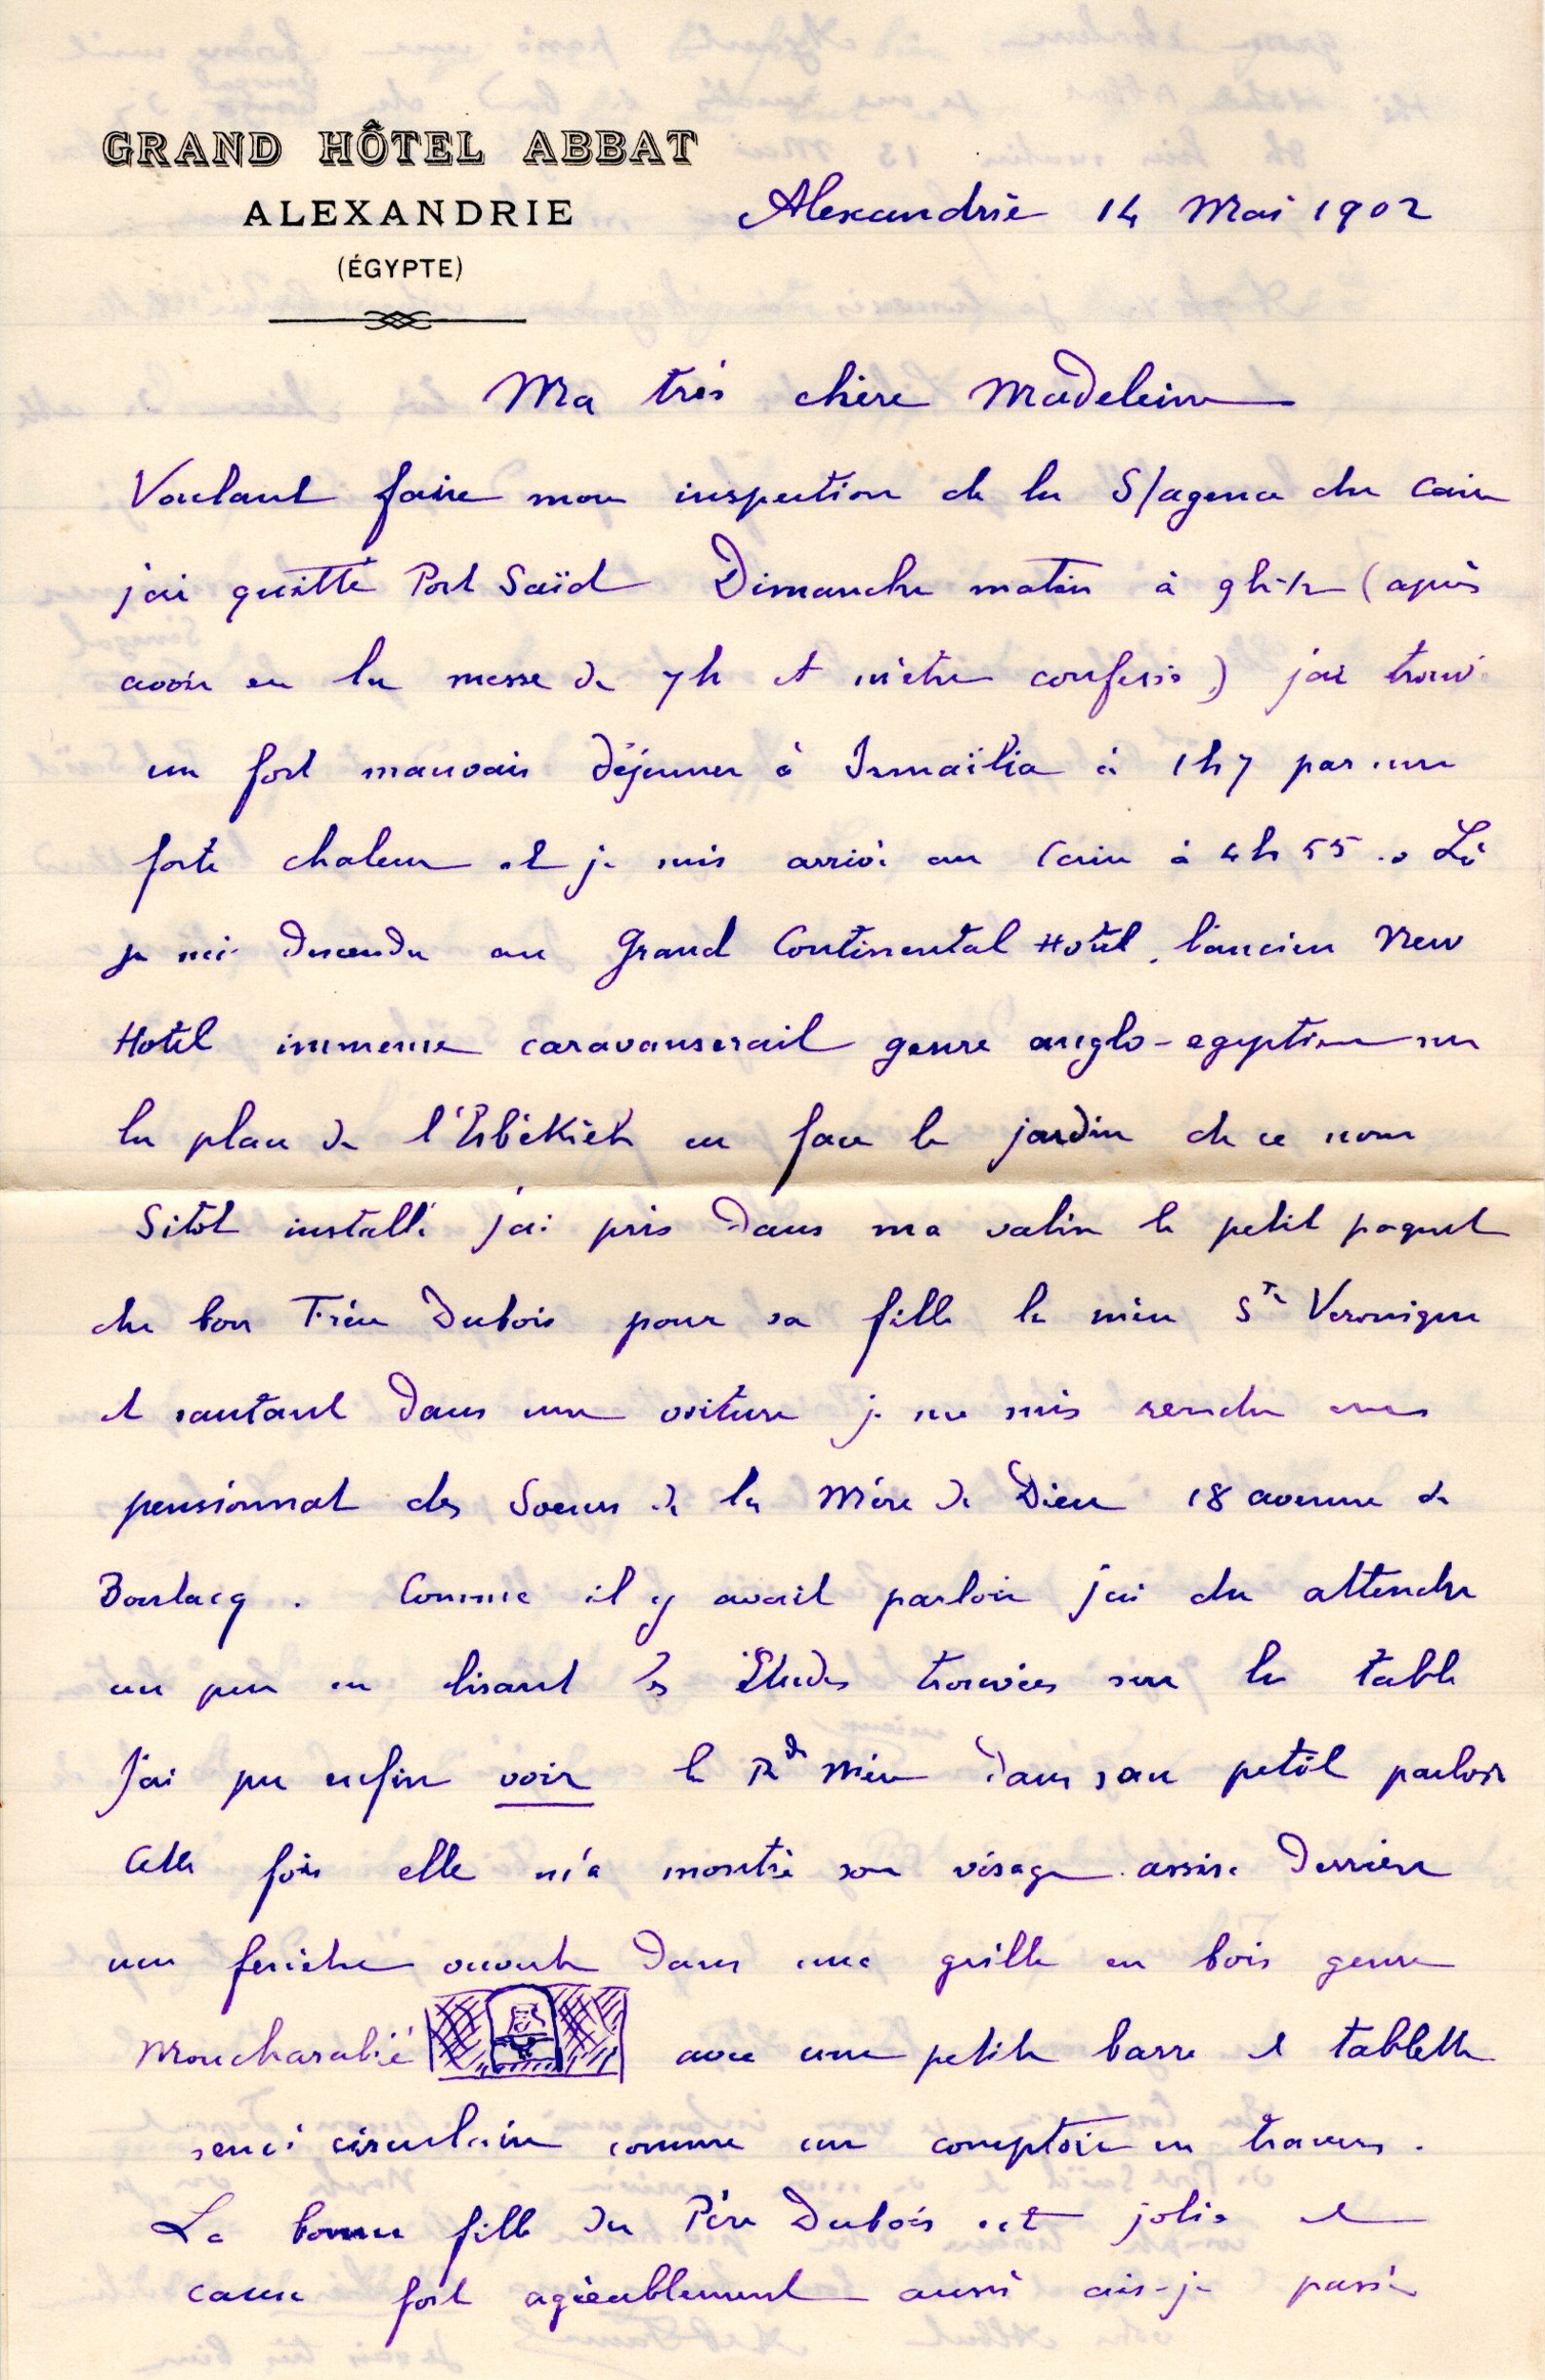 GRAND HÔTEL ABBAT
ALEXANDRIE
(ÉGYPTE)
Alexandrie 14 Mai 1902
Ma très chère Madeleine
Voulant faire mon inspection de la S/agence du Caire
j'ai quitté Port Saïd Dimanche matin à 9h-1/2 (après
avoir eu la messe de 7h et m'être confessé) j'ai trouvé
un fort mauvais déjeuner à Ismaïlia à 1h7 par une
forte chaleur et je suis arrivé au Caire à 4h55. Là
je suis descendu au Grand Continental Hotel, l'ancien New
Hotel immense caravanserail genre anglo-egyptien sur
la place de l'Esbékieh en face le jardin de ce nom
Sitôt installé j'ai pris dans ma valise le petit paquet
du bon Père Dubois pour sa fille la mère Ste Veronique
et sautant dans une voiture je me suis rendu au
pensionnat des Soeurs de la Mère de Dieu 18 avenue de
Boulacq. Comme il y avait parloir j'ai du attendre
un peu en lisant les Etudes trouvées sur la table
J'ai pu enfin voir la Rde Mère dans son petit parloir
Cette fois elle m'a montré son visage assise derrière
une fenêtre ouverte dans une grille en bois genre
Moucharabié avec une petite barre et tablette
semi circulaire comme un comptoir en travers.
La bonne fille du Père Dubois est jolie et
cause fort agréablement aussi ais-je passé